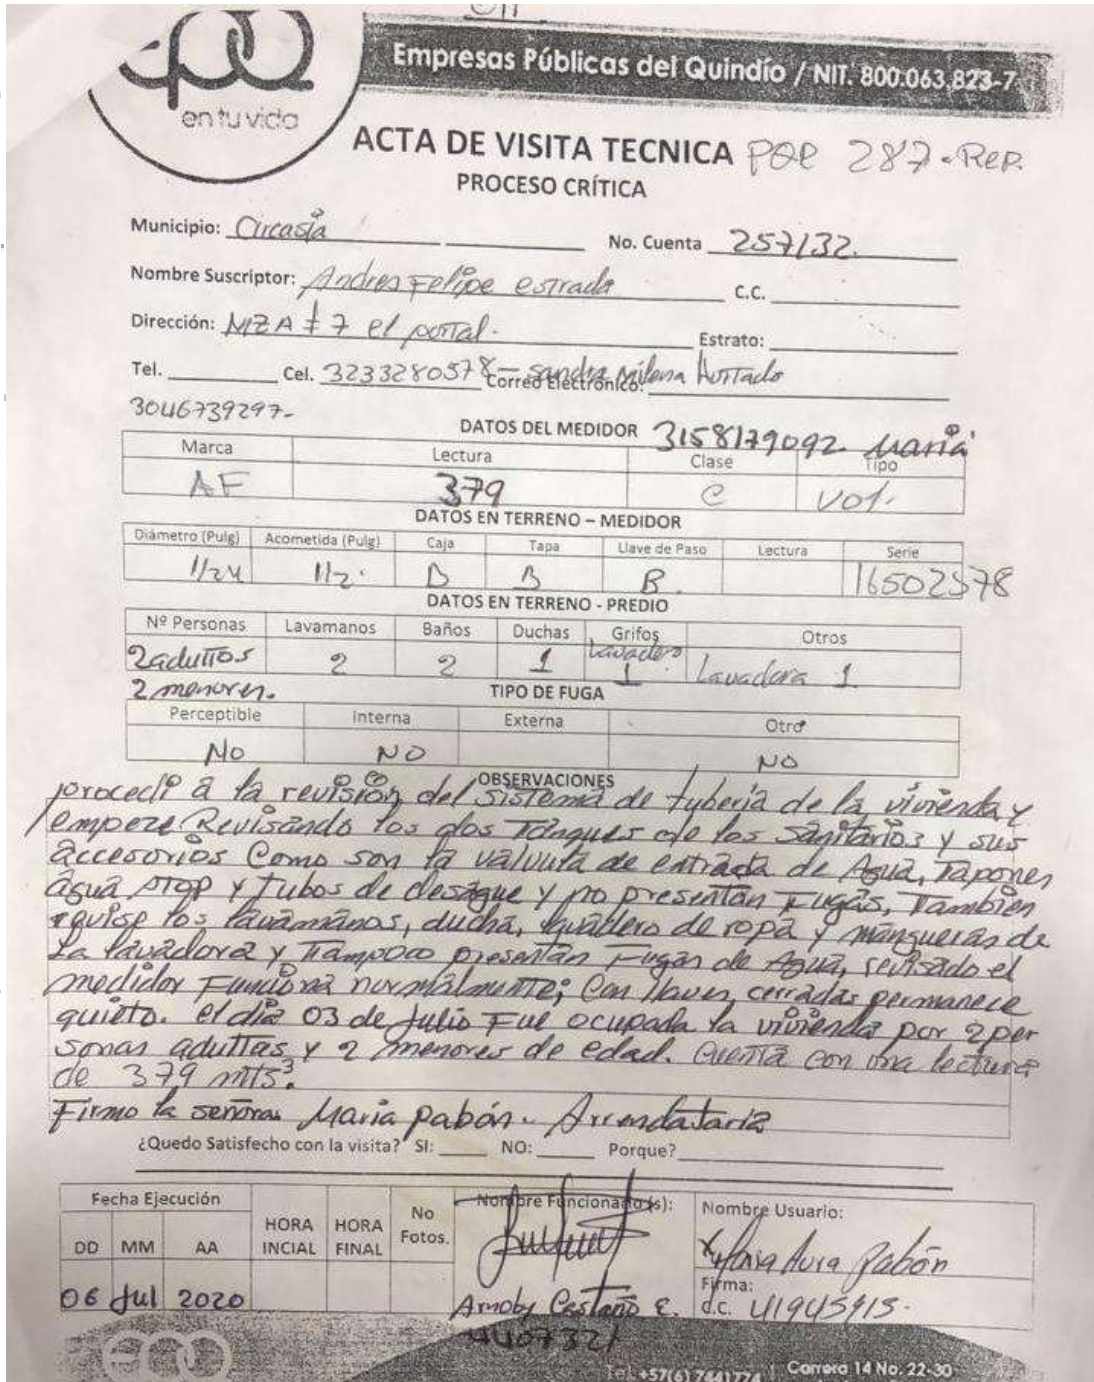 epq
en tu vida
Empresas Públicas del Quindío / NIT. 800.063.823-7
ACTA DE VISITA TECNICA PQR 287-Rep.
PROCESO CRÍTICA
Municipio: Circasia No. Cuenta 257132.
Nombre Suscriptor: Andres Felipe estrada C.C.
Dirección: MZA # 7 el portal. Estrato:
Tel. Cel. 3233280578 - Sandra Milena Hurtado Correo Electrónico:
3046739297-
DATOS DEL MEDIDOR 3158179092 Maria
Marca Lectura Clase Tipo
AF 379 C Vol.
DATOS EN TERRENO – MEDIDOR
Diámetro (Pulg) Acometida (Pulg) Caja Tapa Llave de Paso Lectura Serie
1/2" 1/2. B B B. 16502578
DATOS EN TERRENO - PREDIO
Nº Personas Lavamanos Baños Duchas Grifos Otros
2 adultos 2 2 1 Lavadero 1 Lavadora 1
2 menores.
TIPO DE FUGA
Perceptible Interna Externa Otro
No NO NO
OBSERVACIONES
procedi a la revisión del sistema de tuberia de la vivienda y
empeze Revisando los dos Tanques de los Sanitarios y sus
accesorios Como son la valvula de entrada de Agua, Tapones
agua STOP y tubos de desague y no presentan Fugas, Tambien
revise los lavamanos, ducha, lavadero de ropa y mangueras de
La lavadora y Tampoco presentan Fugas de Agua, revisado el
medidor Funciona normalmente; Con llaves cerradas permanece
quieto. el dia 03 de Julio Fue ocupada la vivienda por 2 per
sonas adultas y 2 menores de edad. Cuenta con una lectura
de 379 mts³.
Firmo la señora Maria pabón. Arrendataria
¿Quedo Satisfecho con la visita? SI: NO: Porque?
Fecha Ejecución HORA INCIAL HORA FINAL No Fotos. Nombre Funcionario (s): Nombre Usuario:
DD MM AA
Maria Aura Pabón
Firma:
06 Jul 2020 Arnoby Castaño E. d.c. 41945915.
4407321
epq
Tel. +57(6) 7441774 Carrera 14 No. 22-30